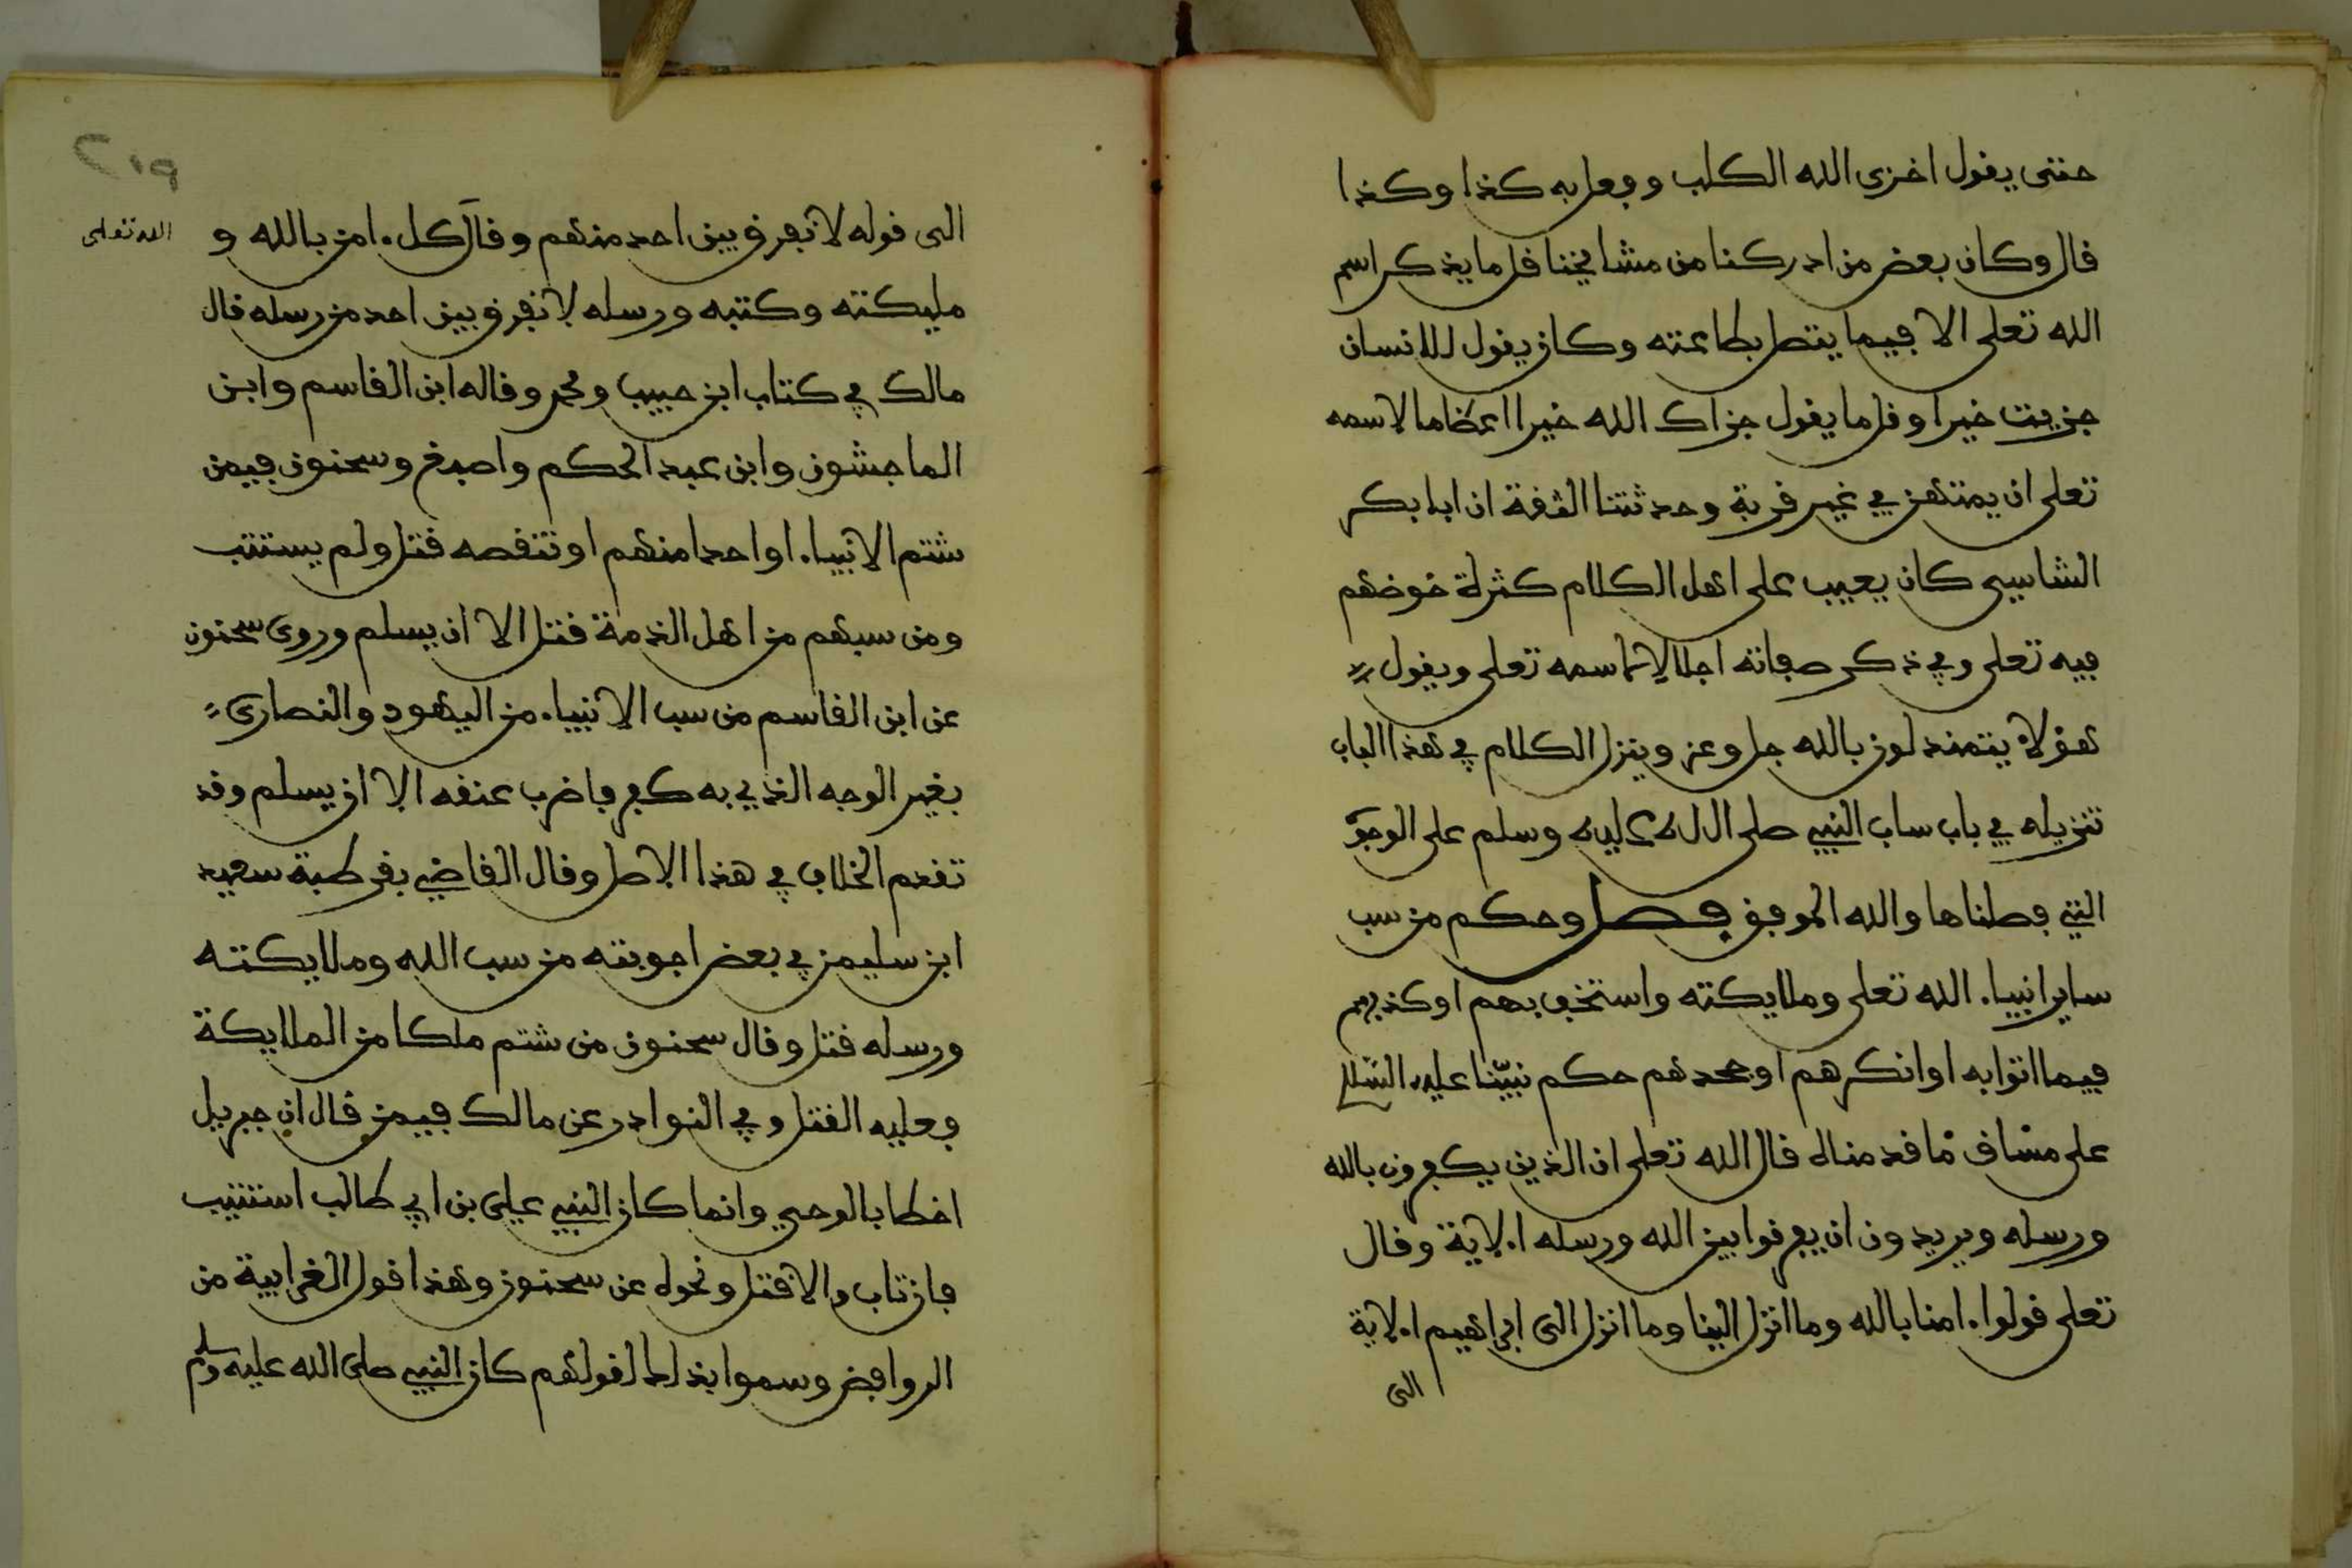 حتى يقول اخزى الله الكلب وفعل به كذا وكذا
قال وكان بعض من ادركنا من مشايخنا قل ما يذكر اسم
الله تعلى الا فيما يتصل بطاعته وكان يقول للانسان
جزيت خيرا وقل ما يقول جزاك الله خيرا اعظاما لاسمه
تعلى ان يمتهن في غير قربة وحدثنا الثقة ان ابا بكر
الشاسي كان يعيب على اهل الكلام كثرة خوضهم
فيه تعلى وفي ذكر صفاته اجلالا لاسمه تعلى ويقول
هؤلاء يتمندلون بالله جل وعز وينزل الكلام في هذا الباب
تنزيله في باب ساب النبي صلى الله عليه وسلم على الوجوه
التي فصلناها والله الموفق فصل وحكم من سب
ساير انبياء الله تعلى وملايكته واستخف بهم او كذبهم
فيما اتوا به او انكرهم او جحدهم حكم نبينا عليه السلام
على مساق ما قدمناه قال الله تعلى ان الذين يكفرون بالله
ورسله ويريدون ان يفرقوا بين الله ورسله الاية وقال
تعلى قولوا ءامنا بالله وما انزل الينا وما انزل الى ابراهيم الاية
الى
٢١٩
الى قوله لا نفرق بين احد منهم وقال كل ءامن بالله و
الله تعلى
مليكته وكتبه ورسله لا نفرق بين احد من رسله قال
مالك في كتاب ابن حبيب ومحمد وقاله ابن القاسم وابن
الماجشون وابن عبد الحكم واصبغ وسحنون فيمن
شتم الانبياء او احدا منهم او تنقصه قتل ولم يستتب
ومن سبهم من اهل الذمة قتل الا ان يسلم وروى سحنون
عن ابن القاسم من سب الانبياء من اليهود والنصارى
بغير الوجه الذي به كفر فاضرب عنقه الا ان يسلم وقد
تقدم الخلاف في هذا الاصل وقال القاضي بقرطبة سعيد
ابن سليمن في بعض اجوبته من سب الله وملايكته
ورسله قتل وقال سحنون من شتم ملكا من الملايكة
فعليه القتل وفي النوادر عن مالك فيمن قال ان جبريل
اخطا بالوحي وانما كان النبي علي بن ابي طالب استتيب
فان تاب والا قتل ونحوه عن سحنون وهذا قول الغرابية من
الروافض وسموا بذلك لقولهم كان النبي صلى الله عليه وسلم